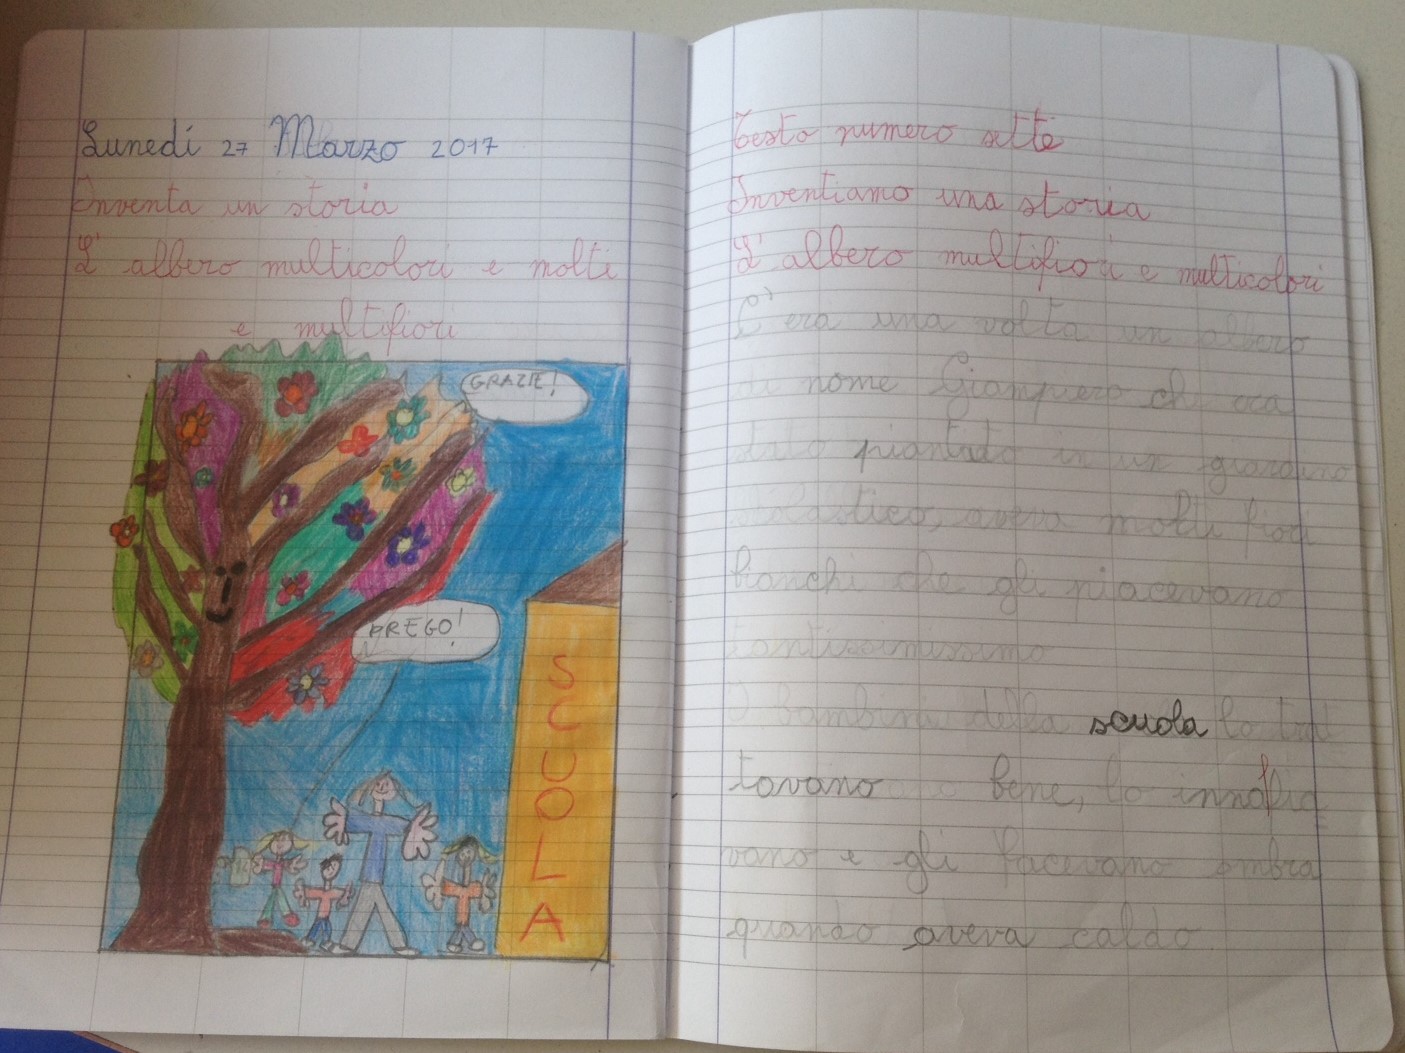 Lunedí 27 Marzo 2017
Inventa un storia
L'albero multicolori e molti
e multifiori
GRAZIE!
PREGO!
SCUOLA
Testo numero sette
Inventiamo una storia
L'albero multifiori e multicolori
C'era una volta un albero
di nome Giampiero che era
stato piantato in un giardino
scolastico, aveva molti fiori
bianchi che gli piacevano
tantissimissimo
I bambini della scuola lo trat
tavano bene, lo innafia
vano e gli facevano ombra
quando aveva caldo.